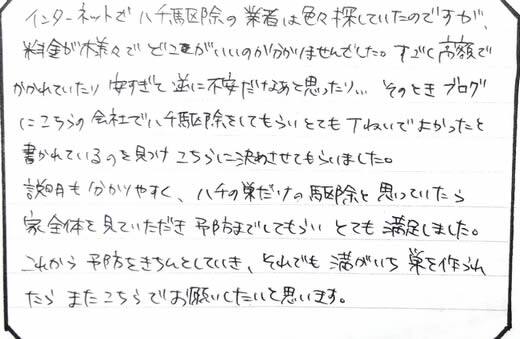 インターネットでハチ駆除の業者は色々探していたのですが、
料金が様々でどこがいいのか分かりませんでした。すごく高額で
かかれていたり安すぎて逆に不安だなあと思ったり… そのときブログ
にこちらの会社でハチ駆除をしてもらいとても丁ねいでよかったと
書かれているのを見つけこちらに決めさせてもらいました。
説明も分かりやすく、ハチの巣だけの駆除と思っていたら
家全体を見ていただき予防までしてもらいとても満足しました。
これから予防をきちんとしていき、それでも満がいち巣を作られ
たらまたこちらでお願いしたいと思います。